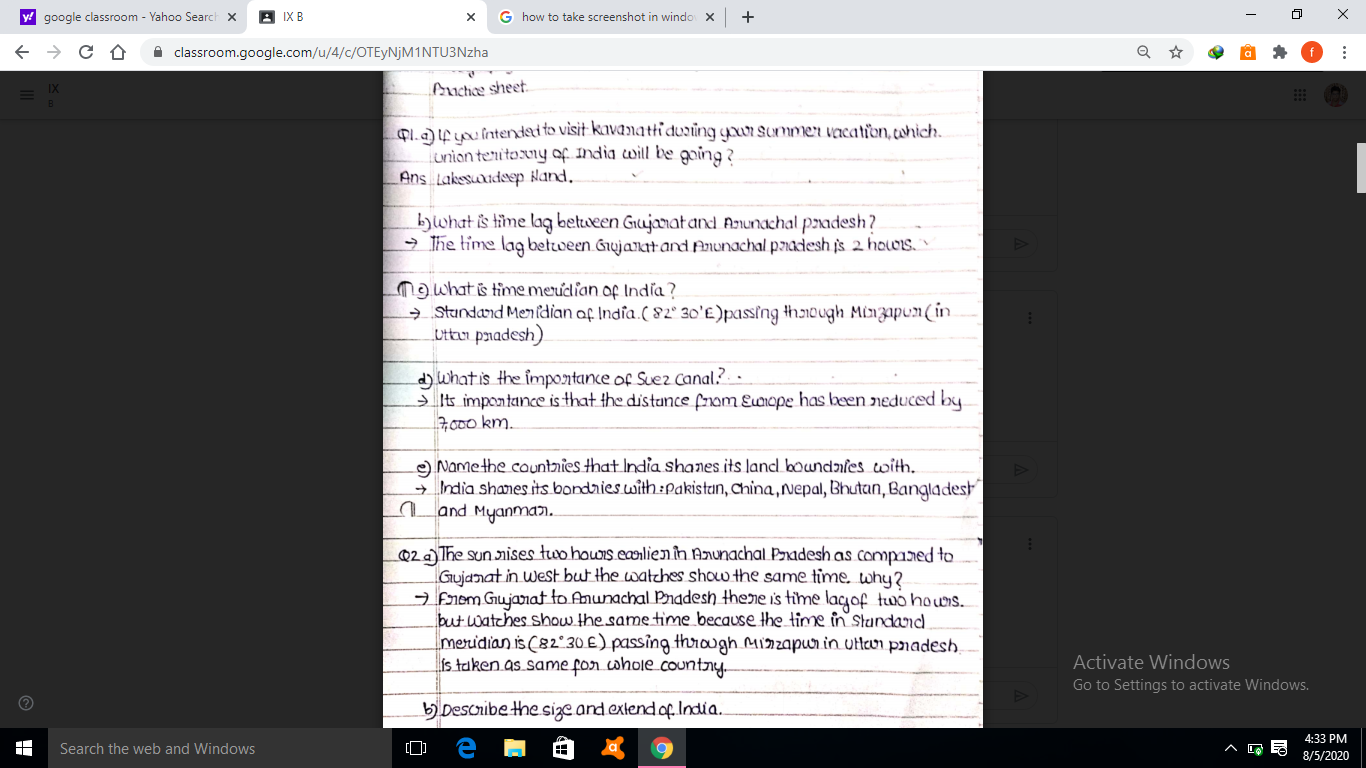 google classroom - Yahoo Search
IX B
how to take screenshot in windo
classroom.google.com/u/4/c/OTEyNjM1NTU3Nzha
IX
B
Practice sheet.
Q1.a) If you intended to visit kavarathi during your summer vacation, which
union territorry of India will be going?
Ans Lakeswadeep Iland.
b) What is time lag between Gujarat and Arunachal pradesh?
→ The time lag between Gujarat and Arunachal pradesh is 2 hours.
c) What is time meridian of India?
→ Standard Meridian of India. (82° 30'E) passing through Mirzapur (in
Uttar pradesh)
d) What is the importance of Suez Canal.?
→ Its importance is that the distance from Europe has been reduced by
7,000 km.
e) Name the countries that India shares its land boundries with.
→ India shares its bondries with: Pakistan, China, Nepal, Bhutan, Bangladesh
and Myanmar.
Q2 a) The sun rises two hours earlier in Arunachal Pradesh as compared to
Gujarat in West but the watches show the same time. why?
→ From Gujarat to Arunachal Pradesh there is time lag of two hours.
but watches show the same time because the time in standard
meridian is (82° 30 E) passing through Mirzapur in uttar pradesh
is taken as same for whole country.
b) Describe the size and extend of India.
Activate Windows
Go to Settings to activate Windows.
Search the web and Windows
4:33 PM
8/5/2020